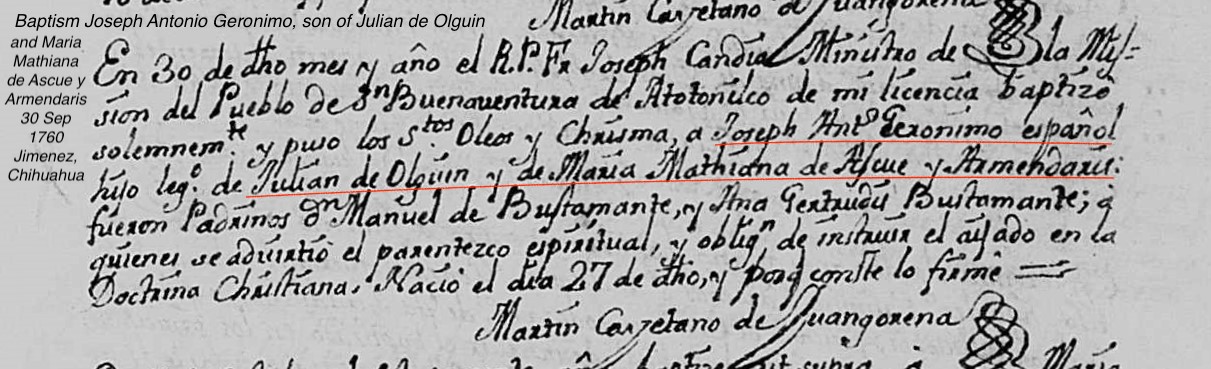 Baptism Joseph Antonio Geronimo, son of Julian de Olguin
and Maria
Mathiana
de Ascue y
Armendaris
30 Sep
1760
Jimenez,
Chihuahua
Martin Cayetano de Juangorena
En 30 de dho mes y año el R.P. Fr Joseph Candia Ministro de la Mis-
sion del Pueblo de Sn Buenaventura de Atotonilco de mi licencia baptizó
solemnemte y puso los Stos Oleos y Chrisma, a Joseph Anto Geronimo español
hijo lego de Julian de Olguin y de Maria Mathiana de Ascue y Armendaris:
fueron Padrinos Dn Manuel de Bustamante, y Ana Gertrudis Bustamante; a
quienes se advirtió el parentezco espiritual, y obligon de instruir el aijado en la
Doctrina Christiana. Nació el dia 27 de dho, y porq conste lo firmé
Martin Cayetano de Juangorena
ut supra a Maria